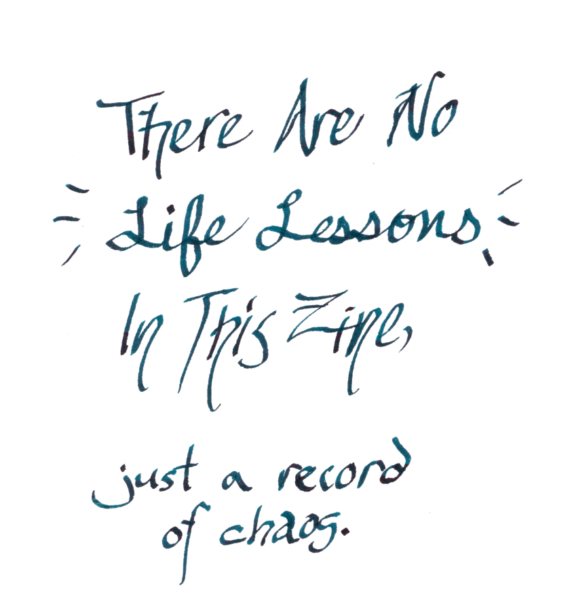 There Are No
Life Lessons
In This Zine,
just a record
of chaos.